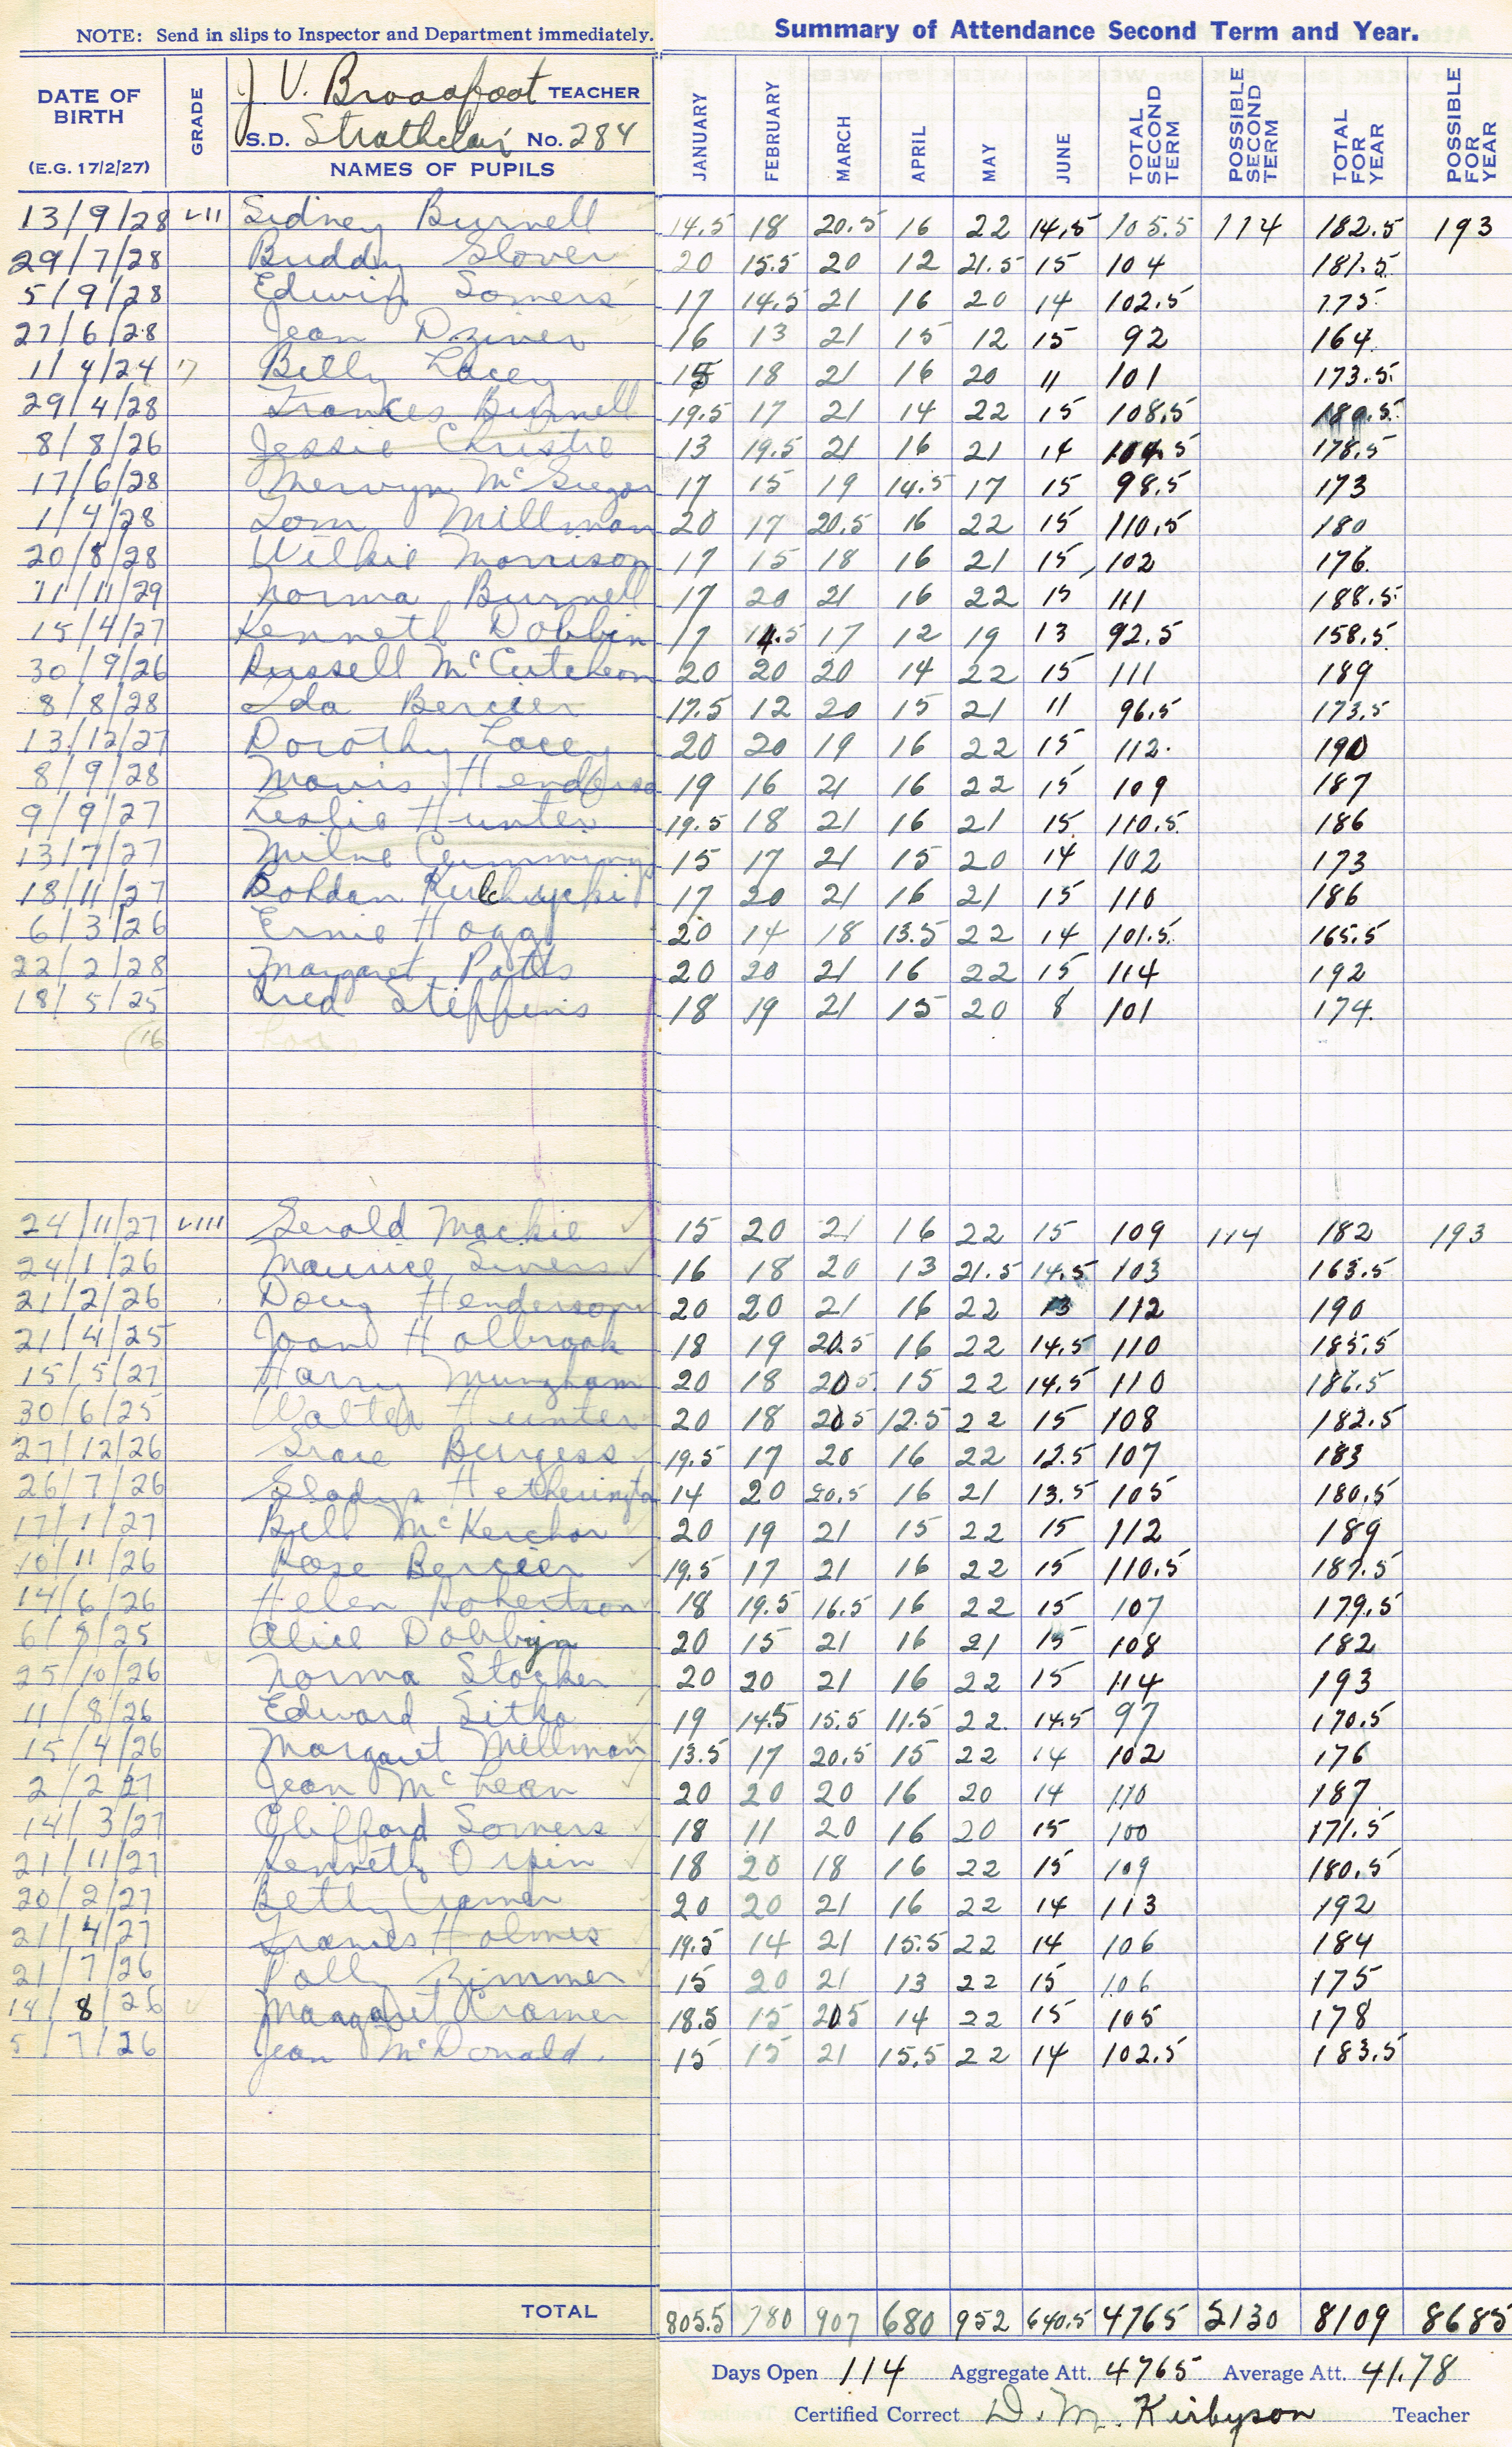 NOTE: Send in slips to Inspector and Department immediately.
Summary of Attendance Second Term and Year.
DATE OF BIRTH (E.G. 17/2/27) GRADE J. V. Broadfoot TEACHER
S.D. Strathclair No. 284
NAMES OF PUPILS JANUARY FEBRUARY MARCH APRIL MAY JUNE TOTAL SECOND TERM POSSIBLE SECOND TERM TOTAL FOR YEAR POSSIBLE FOR YEAR
13/9/28 VII Sidney Burnell 14.5 18 20.5 16 22 14.5 105.5 114 182.5 193
29/7/28 Buddy Glover 20 15.5 20 12 21.5 15 104 181.5
5/9/28 Edwin Somers 17 14.5 21 16 20 14 102.5 175
27/6/28 Jean 16 13 21 15 12 15 92 164
1/4/24 Billy Lacey 15 18 21 16 20 11 101 173.5
29/4/28 Frances Burnell 19.5 17 21 14 22 15 108.5 189.5
8/8/26 Jessie Christie 13 19.5 21 16 21 14 104.5 178.5
17/6/28 Mervyn McGregor 17 15 19 14.5 17 15 98.5 173
1/4/28 Tom Millman 20 17 20.5 16 22 15 110.5 180
20/8/28 Wilkie Morrison 17 15 18 16 21 15 102 176
11/11/29 Norma Burnell 17 20 21 16 22 15 111 188.5
15/4/27 Kenneth Dobbin 17 14.5 17 12 19 13 92.5 158.5
30/9/26 Russell McCutcheon 20 20 20 14 22 15 111 189
8/8/28 Ida Bercier 17.5 12 20 15 21 11 96.5 173.5
13/12/27 Dorothy Lacey 20 20 19 16 22 15 112 190
8/9/28 Mavis Henderso 19 16 21 16 22 15 109 187
9/9/27 Leslie Hunter 19.5 18 21 16 21 15 110.5 186
13/7/27 Milne Cummings 15 17 21 15 20 14 102 173
18/11/27 Bohdan Kulchycki 17 20 21 16 21 15 110 186
6/3/26 Ernie Hogg 20 14 18 13.5 22 14 101.5 165.5
22/2/28 Margaret Potts 20 20 21 16 22 15 114 192
18/5/25 Fred Steffins 18 19 21 15 20 8 101 174
24/11/27 VIII Gerald Mackie 15 20 21 16 22 15 109 114 182 193
24/1/26 Maurice Sivers 16 18 20 13 21.5 14.5 103 163.5
21/2/26 Doug Henderson 20 20 21 16 22 13 112 190
21/4/25 Joan Holbrook 18 19 20.5 16 22 14.5 110 185.5
15/5/27 Harry Mungham 20 18 20.5 15 22 14.5 110 186.5
30/6/25 Walter Hunter 20 18 20.5 12.5 22 15 108 182.5
27/12/26 Grace Burgess 19.5 17 20 16 22 12.5 107 183
26/7/26 Gladys Hetherington 14 20 20.5 16 21 13.5 105 180.5
17/1/27 Bill McKerchar 20 19 21 15 22 15 112 189
10/11/26 Rose Bercier 19.5 17 21 16 22 15 110.5 187.5
14/6/26 Helen Robertson 18 19.5 16.5 16 22 15 107 179.5
6/9/25 Alice Dobbyn 20 15 21 16 21 15 108 182
25/10/26 Norma Stocker 20 20 21 16 22 15 114 193
11/8/26 Edward Sitko 19 14.5 15.5 11.5 22 14.5 97 170.5
15/4/26 Margaret Millman 13.5 17 20.5 15 22 14 102 176
2/2/27 Jean McLean 20 20 20 16 20 14 110 187
14/3/27 Clifford Somers 18 11 20 16 20 15 100 171.5
21/11/27 Kenneth Orpin 18 20 18 16 22 15 109 180.5
20/2/27 Betty Cramer 20 20 21 16 22 14 113 192
21/4/27 Frances Holmes 19.5 14 21 15.5 22 14 106 184
21/7/26 Polly Zimmer 15 20 21 13 22 15 106 175
14/8/26 Margaret Cramer 18.5 15 20.5 14 22 15 105 178
5/7/26 Jean McDonald 15 15 21 15.5 22 14 102.5 183.5
TOTAL 805.5 780 907 680 952 640.5 4765 5130 8109 8685
Days Open 114 Aggregate Att. 4765 Average Att. 41.78
Certified Correct D. M. Kirbyson Teacher